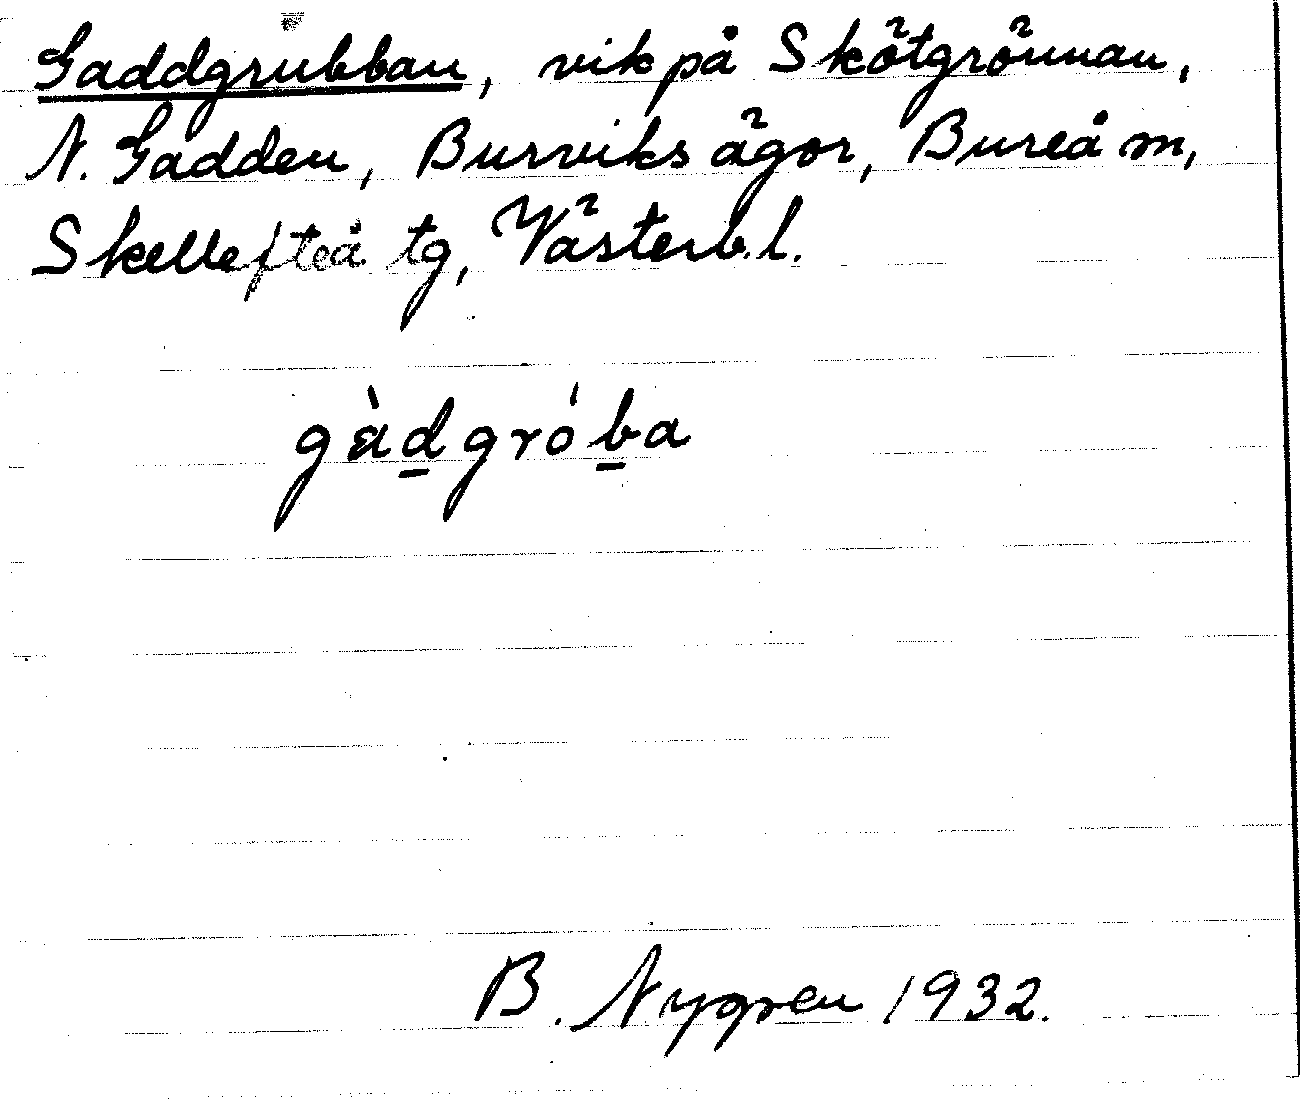 Gaddgrubban, vik på Skötgrönnan,
N. Gadden, Burviks ägor, Bureå m,
Skellefteå tg, Västerb. l.
gàd̲grób̲a
B. Nygren 1932.